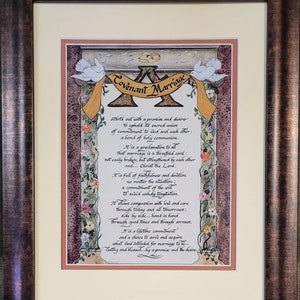 Covenant Marriage
A
starts out with a promise and desire
to uphold its sacred union
of commitment to God and each other
a bond of holy communion.
It is a proclamation to all
that marriage is a threefold cord
not easily broken, but strengthened by each other
and... Christ the Lord.
It is full of faithfulness and devotion
no matter the situation;
a commitment of the will
to avoid unholy temptation.
It shows compassion with love and care
through today and all tomorrows;
side by side... hand in hand
through good times and through sorrows.
It is a lifetime commitment
and a choice to serve and acquire
what God intended for marriage to be...
and blessed... by a promise and the desire.